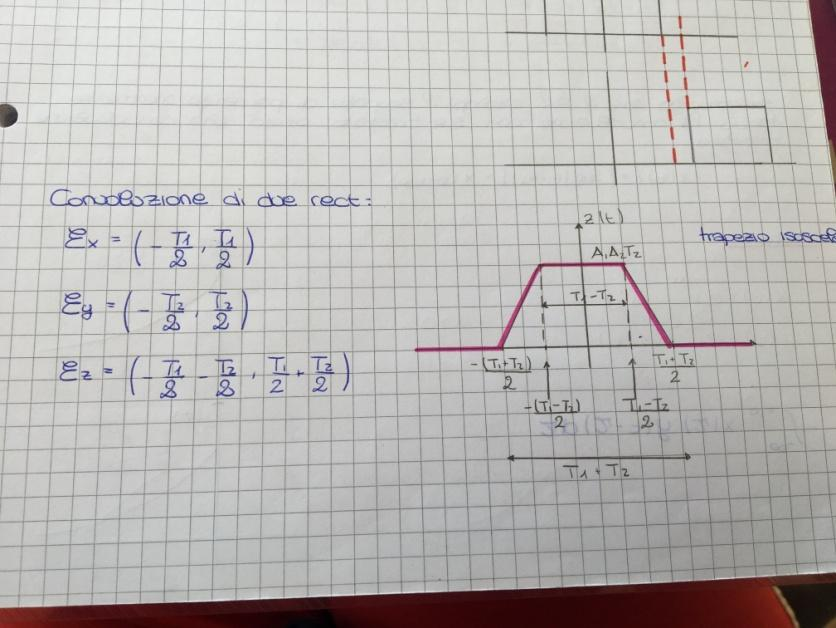 Convoluzione di due rect:
Ɛx = (- T1/2, T1/2)
Ɛy = (- T2/2, T2/2)
Ɛz = (- T1/2 - T2/2, T1/2 + T2/2)
z(t)
trapezio isoscel
A1A2T2
T1-T2
-(T1+T2)/2
T1+T2/2
-(T1-T2)/2
T1-T2/2
T1+T2